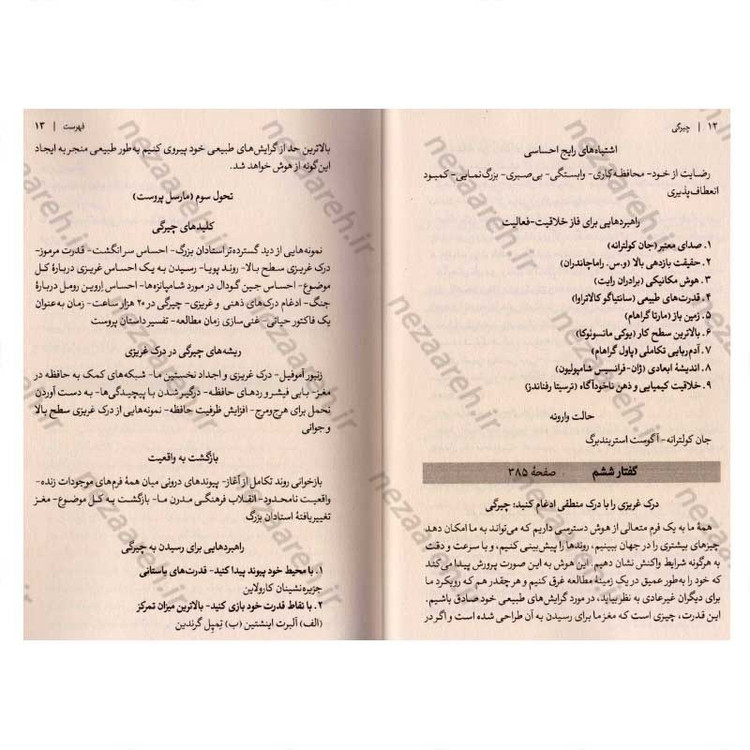 ۱۲ | چیرگی
اشتباه‌های رایج احساسی
رضایت از خود- محافظه‌کاری- وابستگی- بی‌صبری- بزرگ‌نمایی- کمبود
انعطاف‌پذیری
راهبردهایی برای فاز خلاقیت-فعالیت
۱. صدای معتبر (جان کولترانه)
۲. حقیقت بازدهی بالا (و.س. راماچاندران)
۳. هوش مکانیکی (برادران رایت)
۴. قدرت‌های طبیعی (سانتیاگو کالاتراوا)
۵. زمین باز (مارتا گراهام)
۶. بالاترین سطح کار (یوکی ماتسونوکا)
۷. آدم‌ربایی تکاملی (پاول گراهام)
۸. اندیشهٔ ابعادی (ژان-فرانسیس شامپولیون)
۹. خلاقیت کیمیایی و ذهن ناخودآگاه (ترسیتا رفناندز)
حالت وارونه
جان کولترانه- آگوست استریندبرگ
گفتار ششم صفحهٔ ۳۸۵
درک غریزی را با درک منطقی ادغام کنید: چیرگی
همهٔ ما به یک فرم متعالی از هوش دسترسی داریم که می‌تواند به ما امکان دهد
چیزهای بیشتری را در جهان ببینیم، روندها را پیش‌بینی کنیم، و با سرعت و دقت
به هرگونه شرایط واکنش نشان دهیم. این هوش به این صورت پرورش پیدا می‌کند
که خود را به‌طور عمیق در یک زمینهٔ مطالعه غرق کنیم و هرچقدر هم که رویکرد ما
برای دیگران غیرعادی به نظر بیاید، در مورد گرایش‌های طبیعی خود صادق باشیم.
این قدرت، چیزی است که مغز ما برای رسیدن به آن طراحی شده است و اگر در
فهرست | ۱۳
بالاترین حد از گرایش‌های طبیعی خود پیروی کنیم به‌طور طبیعی منجر به ایجاد
این‌گونه از هوش خواهد شد.
تحول سوم (مارسل پروست)
کلیدهای چیرگی
نمونه‌هایی از دید گسترده‌تر استادان بزرگ- احساس سرانگشت- قدرت مرموز-
درک غریزی سطح بالا- روند پویا- رسیدن به یک احساس غریزی دربارهٔ کل
موضوع- احساس جین گودال در مورد شامپانزه‌ها- احساس اِروین رومل دربارهٔ
جنگ- ادغام درک‌های ذهنی و غریزی- چیرگی در ۲۰ هزار ساعت- زمان به‌عنوان
یک فاکتور حیاتی- غنی‌سازی زمان مطالعه- تفسیر داستان پروست
ریشه‌های چیرگی در درک غریزی
زنبور آموفیل- درک غریزی و اجداد نخستین ما- شبکه‌های کمک به حافظه در
مغز- باپی فیشر و ردهای حافظه- درگیر شدن با پیچیدگی‌ها- به دست آوردن
تحمل برای هرج‌ومرج- افزایش ظرفیت حافظه- نمونه‌هایی از درک غریزی سطح بالا
و جوانی
بازگشت به واقعیت
بازخوانی روند تکامل از آغاز- پیوندهای درونی میان همهٔ فرم‌های موجودات زنده-
واقعیت نامحدود- انقلاب فرهنگی مدرن ما- بازگشت به کل موضوع- مغز
تغییریافتهٔ استادان بزرگ
راهبردهایی برای رسیدن به چیرگی
۱. با محیط خود پیوند پیدا کنید- قدرت‌های باستانی
جزیره‌نشینان کارولاین
۲. با نقاط قدرت خود بازی کنید- بالاترین میزان تمرکز
(الف) آلبرت اینشتین (ب) تِمپِل گرندین
nezaareh.ir